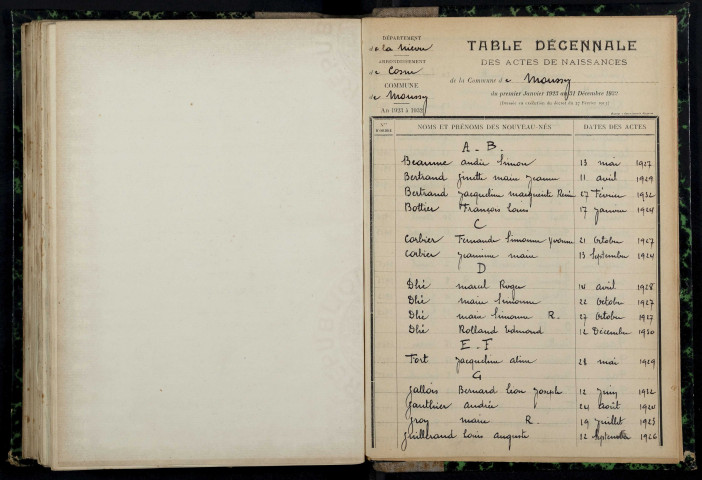 DÉPARTEMENT
de la Nièvre
ARRONDISSEMENT
de Cosne
COMMUNE
de Moussy
An 1923 à 1932
TABLE DÉCENNALE
DES ACTES DE NAISSANCES
de la Commune de Moussy
du premier Janvier 1923 au 31 Décembre 1932
(Dressée en exécution du décret du
N° D'ORDRE
NOMS ET PRÉNOMS DES NOUVEAU-NÉS
DATES DES ACTES
A - B.
Beaune andré Simon 13 mai 1927
Bertrand ginette marie Jeanne 11 avril 1929
Bertrand Jacqueline marguerite 17 Février 1932
Bottier François Louis 17 Janvier 1924
C
Corbier Fernande Simonne Yvonne 21 Octobre 1927
Corbier Jeannine marie 13 Septembre 1924
D
Dhé marcel Roger 14 avril 1928
Dhé marie Simonne 22 Octobre 1927
Dhé marie Simonne R. 27 Octobre 1927
Dhé Rolland Edmond 12 Décembre 1930
E - F
Fort Jacqueline aline 28 mai 1929
G
Gallois Bernard Léon Joseph 12 Juin 1932
Gauthier andrée 24 août
Groy marie R. 19 Juillet 1923
Guillerand Louis auguste 12 Septembre 1926